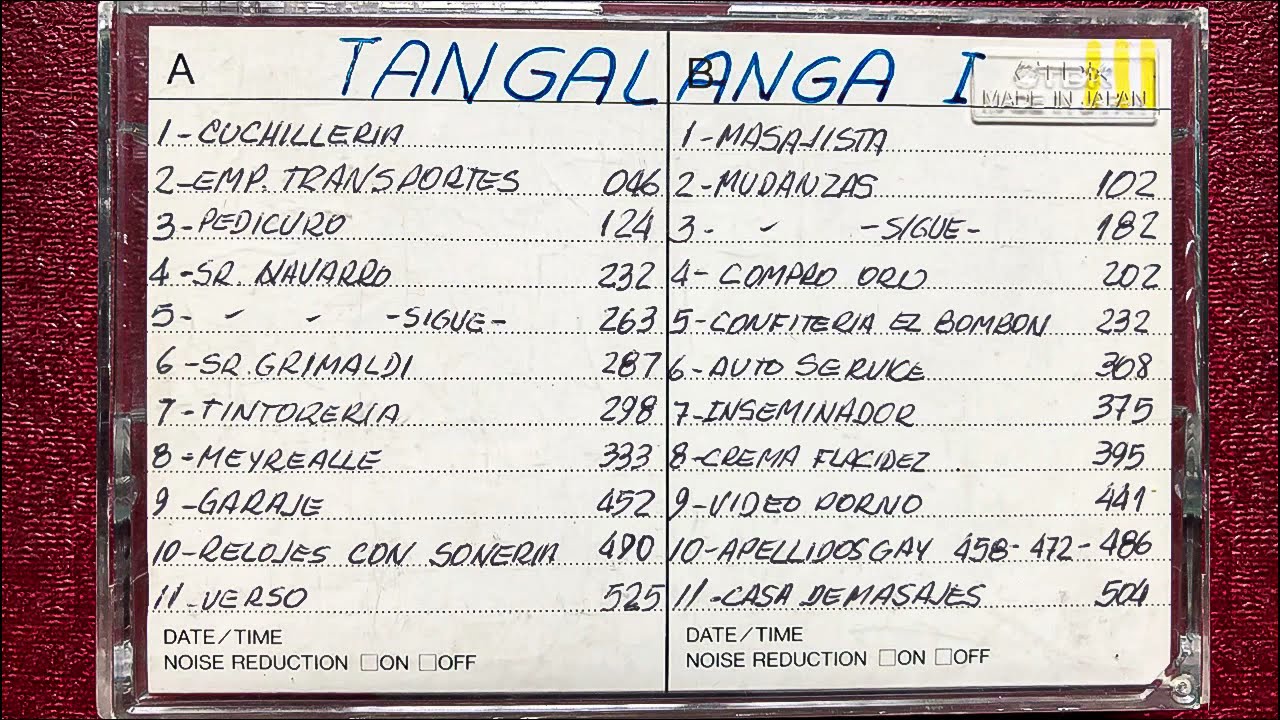 A TANGAL B ANGA I
TDK
MADE IN JAPAN
1-CUCHILLERIA
2-EMP. TRANSPORTES 046
3-PEDICURO 124
4-SR. NAVARRO 232
5- " " -SIGUE- 263
6-SR. GRIMALDI 287
7-TINTORERIA 298
8-MEYREALLE 333
9-GARAJE 452
10-RELOJES CON SONERIA 490
11-VERSO 525
DATE/TIME
NOISE REDUCTION □ON □OFF
1-MASAJISTA
2-MUDANZAS 102
3- " -SIGUE- 182
4-COMPRO ORO 202
5-CONFITERIA EL BOMBON 232
6-AUTO SERVICE 308
7-INSEMINADOR 375
8-CREMA FLACIDEZ 395
9-VIDEO PORNO 441
10-APELLIDOS GAY 458-472-486
11-CASA DE MASAJES 504
DATE/TIME
NOISE REDUCTION □ON □OFF